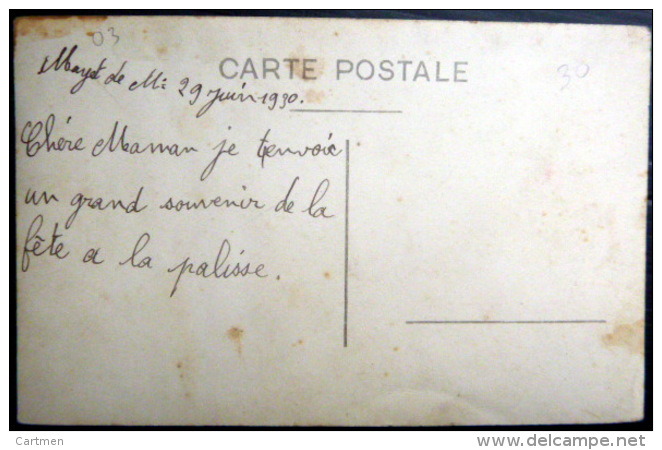 03
30
CARTE POSTALE
Mayet de Mi 29 juin 1930.
Chére Maman je tenvoie
un grand souvenir de la
fête a la palisse.
Cartmen
www.delcampe.net